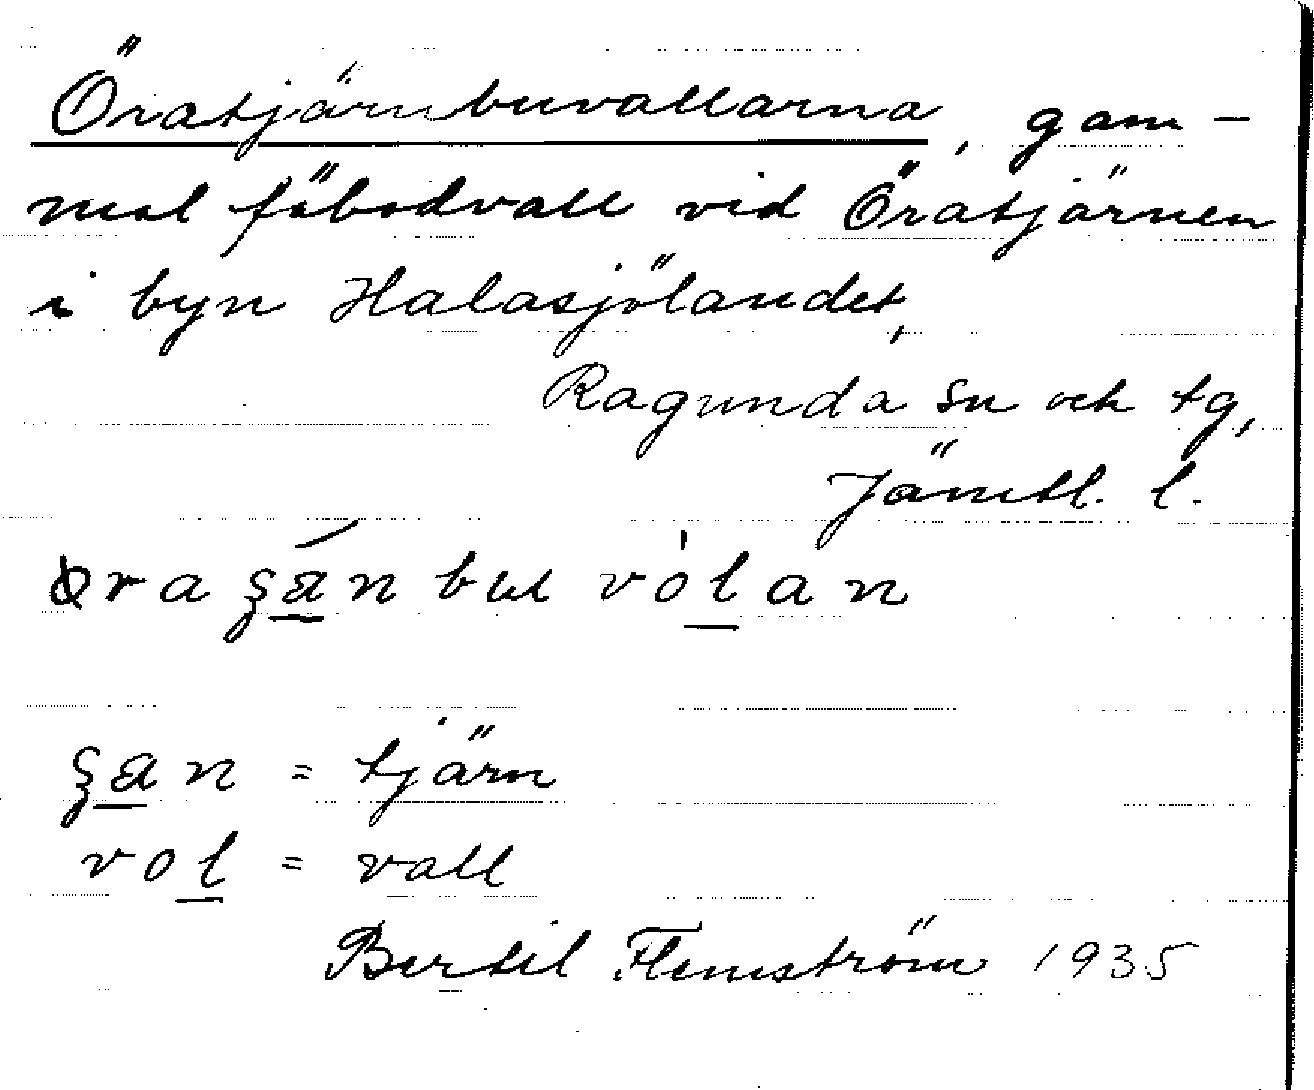 Öratjärnbuvallarna, gam-
mal fäbodvall vid Öratjärnen
i byn Halasjölandet,
Ragunda sn och tg,
Jämtl. l.
bul volan
= tjärn
vol = vall
Bertil Flemström 1935